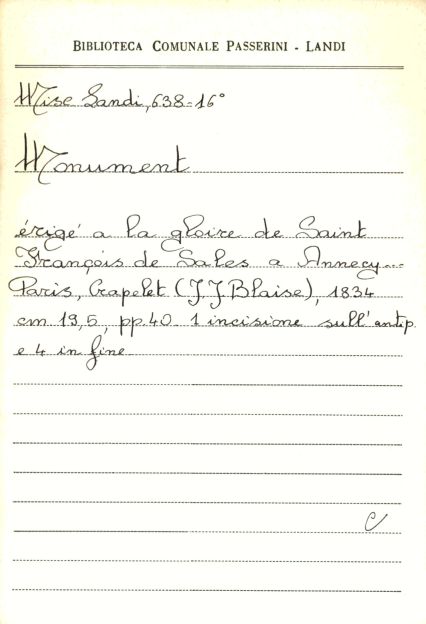 BIBLIOTECA COMUNALE PASSERINI - LANDI
Misc Landi, 638-16°
Monument
érigé a la gloire de Saint
François de Sales a Annecy...
Paris, Crapelet (J.J Blaise), 1834
cm 19,5, pp. 40 1 incisione sull' antip.
e 4 in fine
C